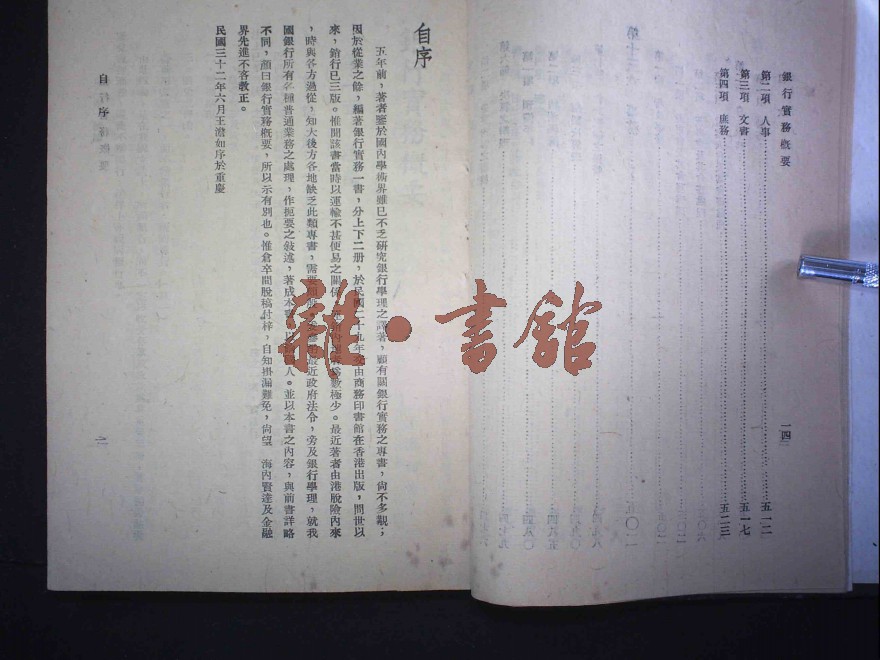 銀行實務概要
第二項 人事 五一二
第三項 文書 五一七
第四項 庶務 五二三
一四
自序
五年前，著者鑒於國內學術界雖已不乏研究銀行學理之譯著，顧有關銀行實務之專書，尙不多觀；
因於從業之餘，編著銀行實務一書，分上下二册，於民國二十九年交由商務印書館在香港出版，問世以
來，銷行已三版。惟聞該書當時以運輸不甚便易之關係，數極少。最近著者由港脫險內來
，時與各方過從，知大後方各地缺乏此類專書，需要最近政府法令，旁及銀行學理，就我
國銀行所有各種普通業務之處理，作扼要之敍述，著成本書人。並以本書之內容，與前書詳略
不同，顏曰銀行實務概要，所以示有別也。惟倉卒間脫稿付梓，自知掛漏難免，尙望 海內賢達及金融
界先進不吝敎正。
民國三十二年六月王澹如序於重慶
自序
二
雜·書館